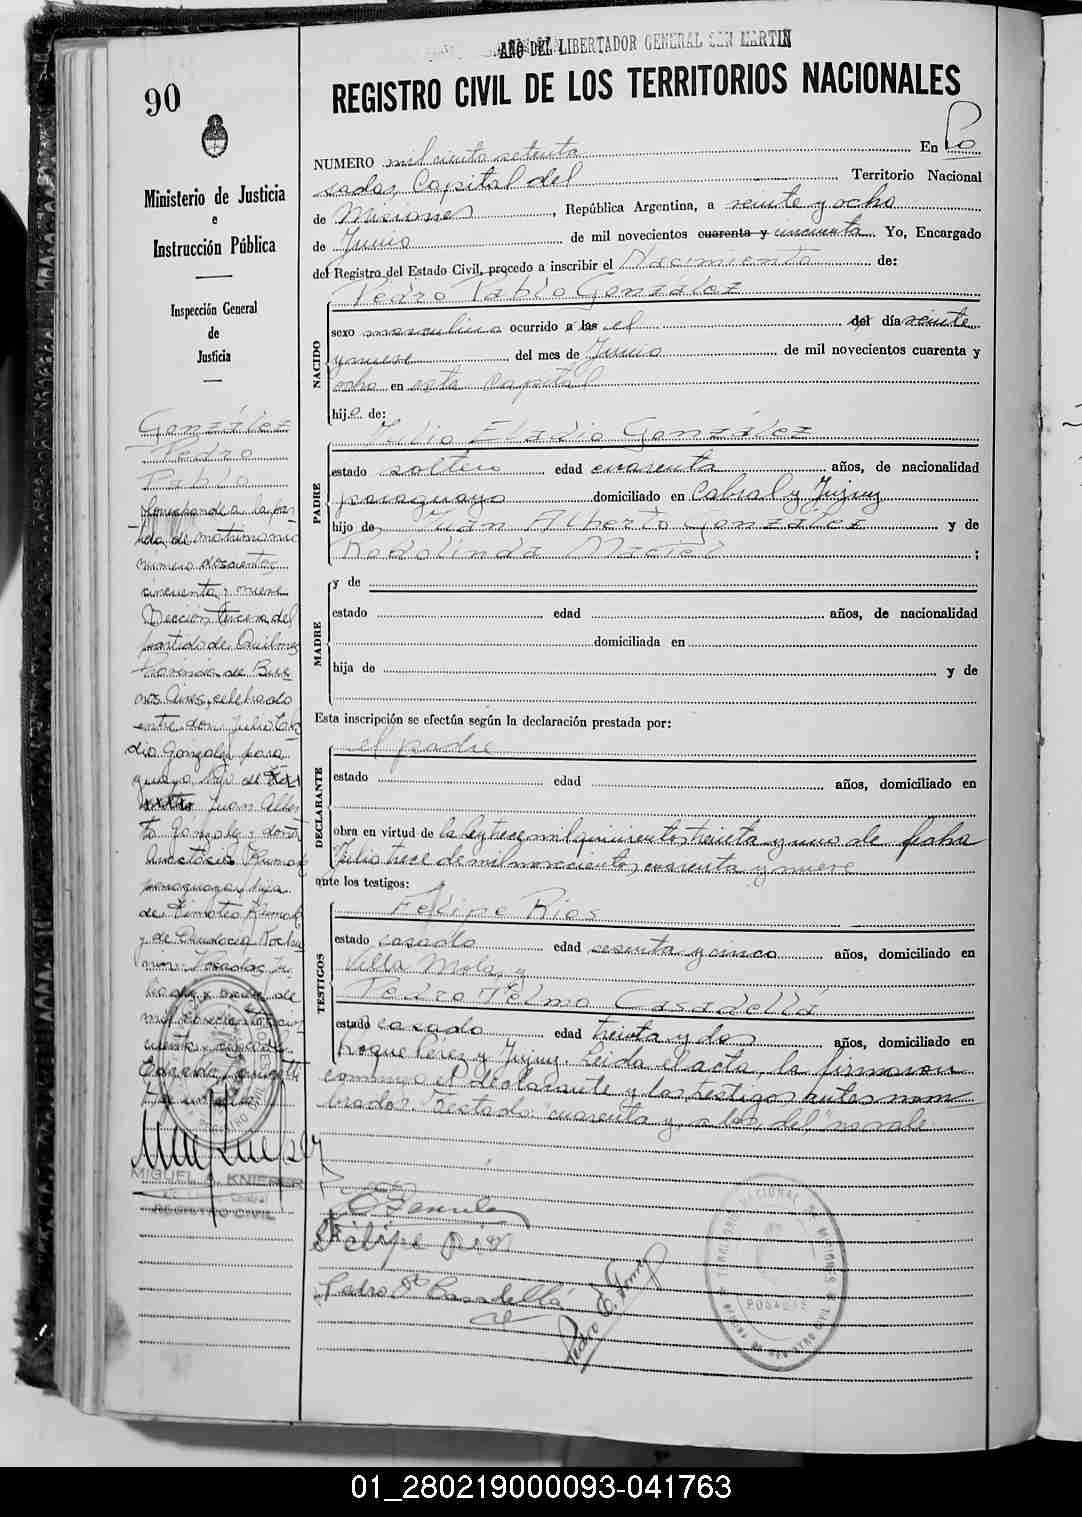 AÑO DEL LIBERTADOR GENERAL SAN MARTIN
90
REGISTRO CIVIL DE LOS TERRITORIOS NACIONALES
Ministerio de Justicia
e
Instrucción Pública
Inspección General
de
Justicia
González
Pedro
Pablo
a la par-
tida de matrimonio
número doscientos
cincuenta y nueve
Sección tercera del
partido de Quilmes
Provincia de Bue-
nos Aires, celebrado
entre don Julio Ela-
dio González para
guayo hijo de
Juan Alber
to González y doña
paraguaya hija
de Timoteo
y de
Posadas,
de
mil novecientos cin
cuenta
MIGUEL A. KNIEPER
REGISTRO CIVIL
NUMERO mil ciento setenta En Po
sadas, Capital del Territorio Nacional
de Misiones, República Argentina, a veinte y ocho
de Junio de mil novecientos cuarenta y cincuenta. Yo, Encargado
del Registro del Estado Civil, procedo a inscribir el Nacimiento de:
Pedro Pablo González
NACIDO
sexo masculino ocurrido a las el del día veinte
y nueve del mes de Junio de mil novecientos cuarenta y
ocho en esta Capital
hijo de:
Julio Eladio González
PADRE
estado soltero edad cuarenta años, de nacionalidad
paraguayo domiciliado en Cabral y Jujuy
hijo de Juan Alberto González y de
Rodolinda Maciel ;
MADRE
y de
estado edad años, de nacionalidad
domiciliada en
hija de y de
Esta inscripción se efectúa según la declaración prestada por:
el padre
DECLARANTE
estado edad años, domiciliado en
obra en virtud de la ley trece mil quinientos treinta y uno de fecha
Julio trece de mil novecientos cuarenta y nueve
ante los testigos:
Felipe Rios
TESTIGOS
estado casado edad sesenta y cinco años, domiciliado en
Villa Mola, y
Pedro Telmo Casadellá
estado casado edad treinta y dos años, domiciliado en
Roque Pérez y Jujuy. Leida el acta, la firmaron
conmigo el declarante y los testigos antes nom
brados. Testado: "cuarenta y, a las, del," no vale
Felipe Rios
Pedro T. Casadellá
Pedro E. Gomez
TERRITORIO NACIONAL DE MISIONES
POSADAS
01_280219000093-041763